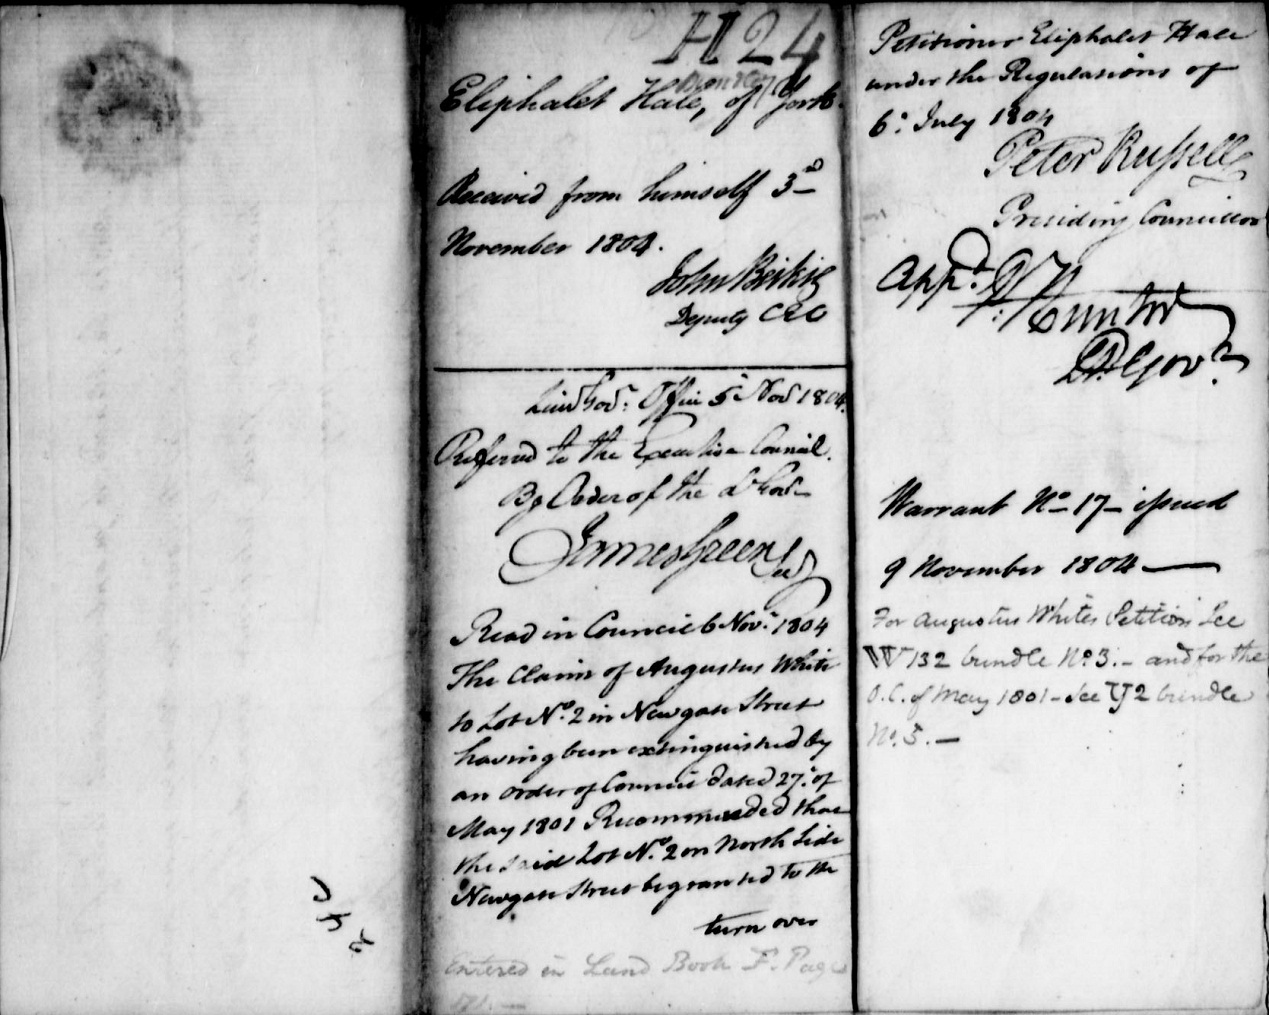 H 24
Eliphalet Hale, of York.
Received from himself 3d
November 1804.
John Beikie
Deputy CEC
Lieut Govrs Office 5 Nov 1804.
Referred to the Executive Council.
By Order of the Lt Govr
James Green
Secy
Read in Council 6 Novr 1804
The Claim of Augustus White
to Lot No. 2 in Newgate Street
having been extinguished by
an order of Council dated 27: of
May 1801 Recommended that
the said Lot No. 2 on North Side
Newgate Street be granted to the
turn over
Entered in Land Book F. Page
Petitioner Eliphalet Hale
under the Regulations of
6: July 1804
Peter Russell
Presiding Councillor
Appd.
P: Hunter
Lt Govr.
Warrant No 17 - issued
9 November 1804
For Augustus White's Petition See
W 132 bundle No 3. - and for the
O.C. of May 1801 - See Y 2 bundle
No. 5. -